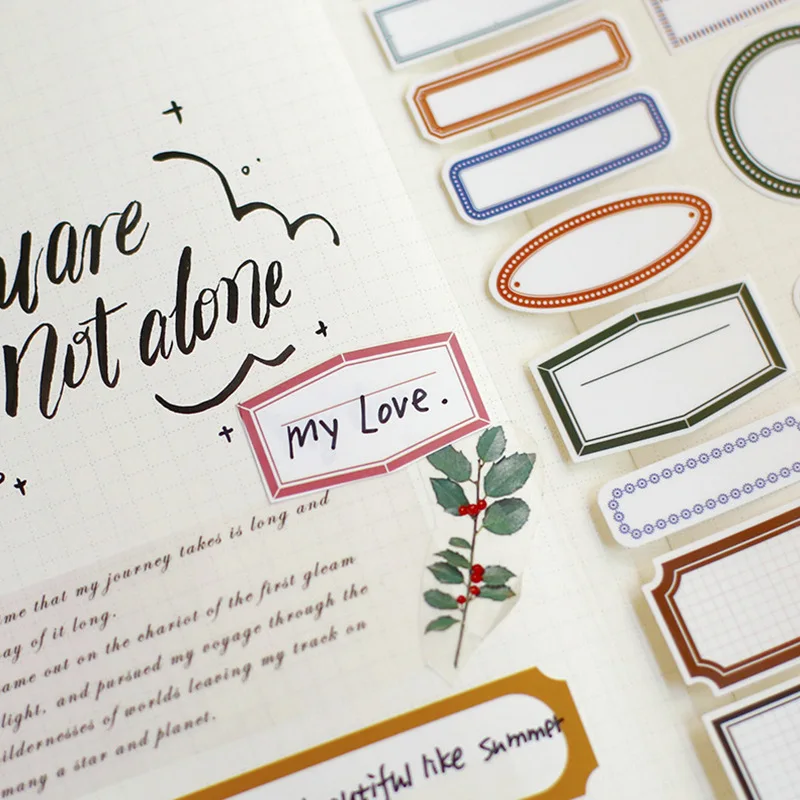 are
not alone
my Love.
time that my journey takes is long and
way of it long.
came out on the chariot of the first gleam
light, and pursued my voyage through the
wildernesses of worlds leaving my track on
many a star and planet.
like summer